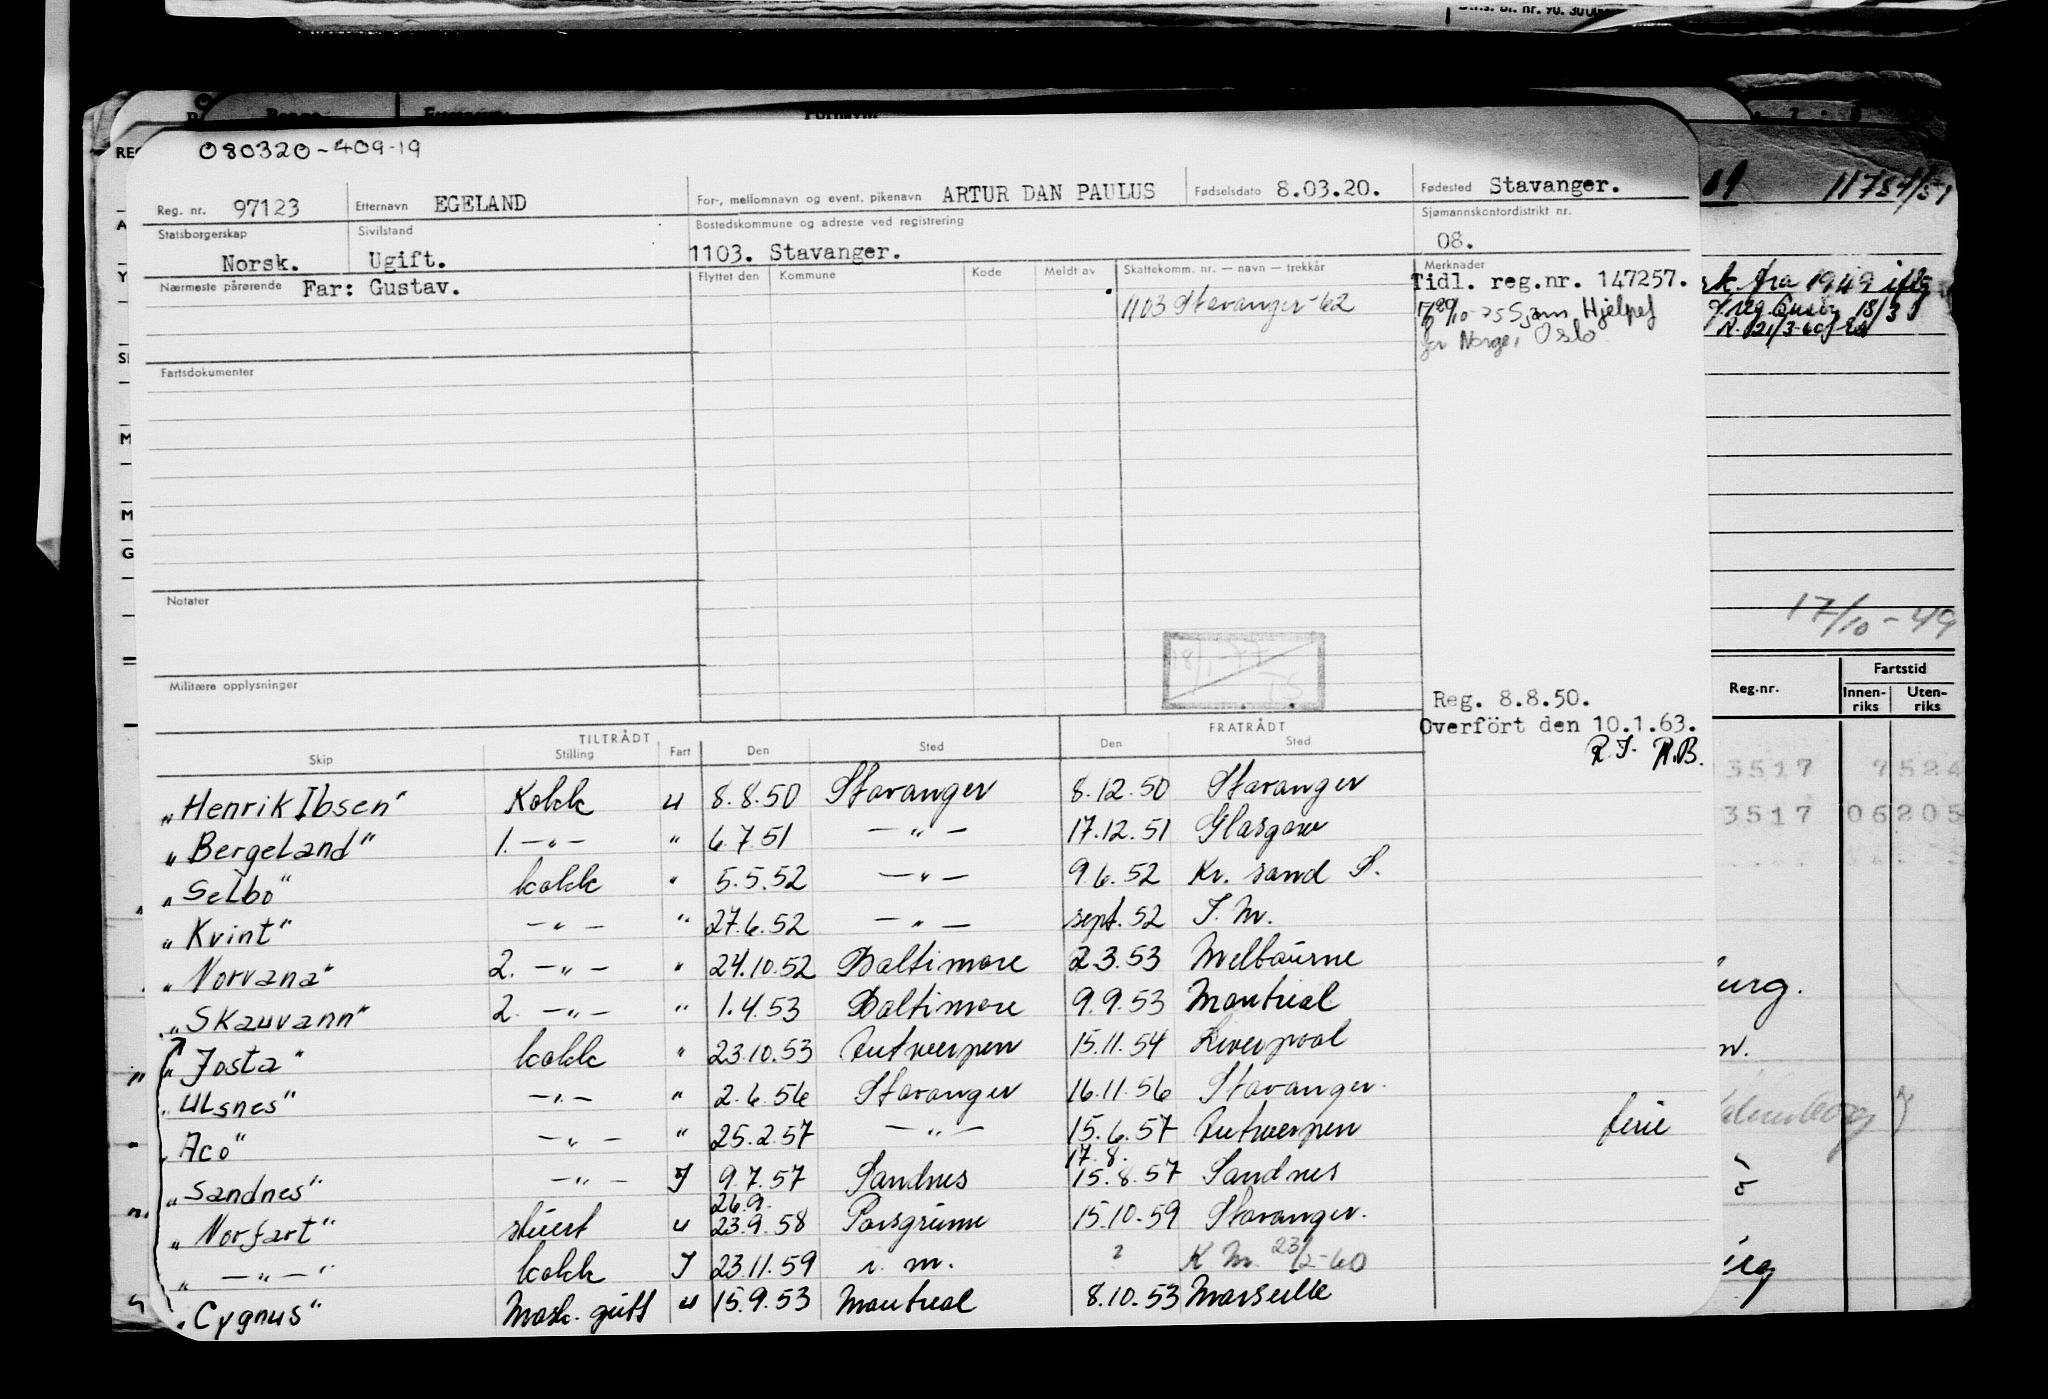 080320-409-19
Reg. nr. 97123 Etternavn EGELAND For-, mellomnavn og event. pikenavn ARTUR DAN PAULUS Fødselsdato 8.03.20. Fødested Stavanger.
Statsborgerskap Norsk. Sivilstand Ugift. Bostedskommune og adresse ved registrering 1103. Stavanger. Sjømannskontordistrikt nr. 08.
Nærmeste pårørende Far: Gustav. Flyttet den Kommune Kode Meldt av Skattekomm. nr. — navn — trekkår Merknader
Tidl. reg.nr. 147257.
1103 Stavanger-62
/10-75 Sjøm Hjelpef
for Norge, Oslo
Fartsdokumenter
Notater
Militære opplysninger
Reg. 8.8.50.
Overført den 10.1.63.
R.J. A.B.
TILTRÅDT FRATRÅDT
Skip Stilling Fart Den Sted Den Sted
"Henrik Ibsen" Kokk U 8.8.50 Stavanger 8.12.50 Stavanger
"Bergeland" 1. —"— " 6.7.51 —"— 17.12.51 Glasgow
"Selbo" kokk " 5.5.52 —"— 9.6.52 Kr. sand S.
"Kvint" —"— " 27.6.52 —"— sept. 52 I. M.
"Norvana" 2. —"— " 24.10.52 Baltimore 2.3.53 Melbourne
"Skauvann" 2. —"— " 1.4.53 Baltimore 9.9.53 Montreal
"Josta" kokk " 23.10.53 Antwerpen 15.11.54 Liverpool
"Ulsnes" —"— " 2.6.56 Stavanger 16.11.56 Stavanger.
"Aco" —"— " 25.2.57 —"— 15.6.57 Antwerpen ferie
17.8.
"Sandnes" —"— I 9.7.57 Sandnes 15.8.57 Sandnes
26.9.
"Norfart" stuert U 23.9.58 Porsgrunn 15.10.59 Stavanger.
" —"— " kokk I 23.11.59 i. m. ? K M 23/2-60
"Cygnus" Mask. gutt U 15.9.53 Montreal 8.10.53 Marseille
11787/51
fra 1949
18/3
17/10-49
Reg.nr. Fartstid
Innenriks Utenriks
3517 7524
3517 06205